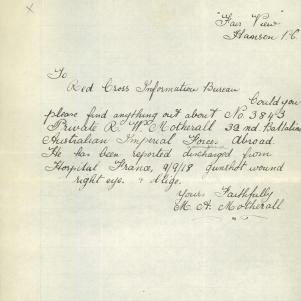 "Fair View"
Hamson P.O.
To
Red Cross Information Bureau
Could you
please find anything out about No. 3843
Private R. W. Motherall 32nd. Battalion
Australian Imperial Forces Abroad
He has been reported discharged from
Hospital France, 9/9/18 gunshot wound
right eye. & oblige.
Yours Faithfully
M. A. Motherall